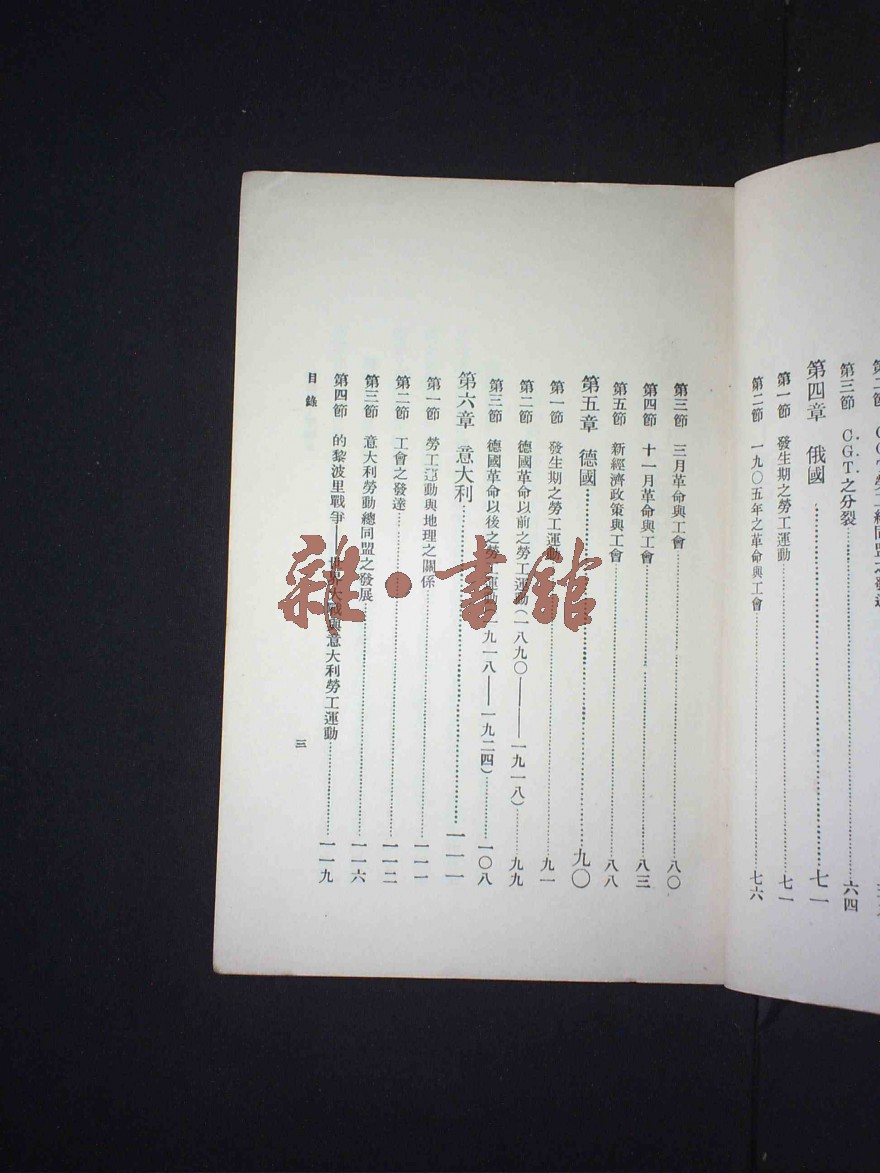 第三節 C.G.T.之分裂……六四
第四章 俄國……七一
第一節 發生期之勞工運動……七一
第二節 一九〇五年之革命與工會……七六
第三節 三月革命與工會……八〇
第四節 十一月革命與工會……八三
第五節 新經濟政策與工會……八八
第五章 德國……九〇
第一節 發生期之勞工運動……九一
第二節 德國革命以前之勞工運動(一八九〇——一九一八)……九九
第三節 德國革命以後之勞工運動(一九一八——一九二四)……一〇八
第六章 意大利……一一一
第一節 勞工運動與地理之關係……一一一
第二節 工會之發達……一一二
第三節 意大利勞動總同盟之發展……一一六
第四節 的黎波里戰爭——世界大戰與意大利勞工運動……一一九
目錄
三
雜·書館